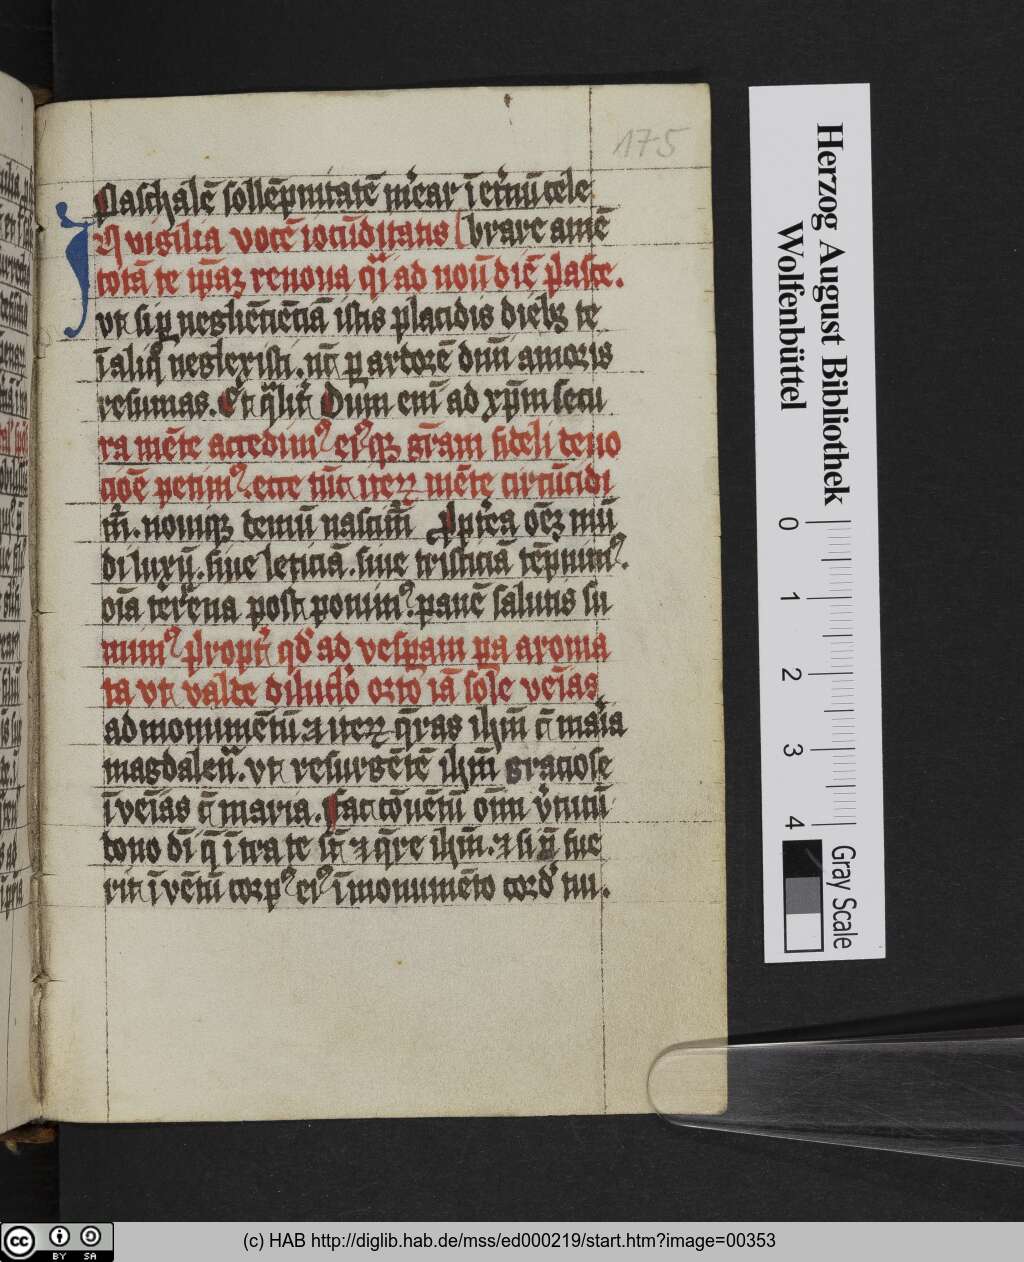 175
Paschalē sollēpnitatē m̄ear ī et̄nū cele
In vigilia vocē iocūditatis brare amē
totā te ip̄aʒ renoua qͥ ad nouū diē pasce.
vt si ꝑ negliēciā istis placidis diebꝫ te
ī aliqͦ neglexisti. nūc ꝑ artorē dn̄i amoris
resumas. Et qͣlit̄ Dum enī ad xp̄m secu
ra mēte accedimꝰ eiꝰqꝫ gr̄am fideli deuo
cioē petimꝰ. ecce tūc iteꝝ mēte circūcidi
m̄. nouiqꝫ demū nascim̄ Propt̄ea oēʒ mū
di luxū. siue leticiā. siue tristiciā tēpnimꝰ.
oīa terrena post ponimꝰ. pauē salutis su
mimꝰ Propt̄ qd̄ ad vesꝑam ꝑa aroma
ta vt valde diluclo orto iā sole veīas
ad monumētū ⁊ iteꝝ q̄ras ih̄m c̄ maīa
magdalen̄. vt resurgētē ih̄m graciose
īveīas c̄ maria. Fac cōuētū om̄ v̄tutū
cono dī q̄ ītra te st̄ ⁊ q̄re ih̄m. ⁊ si n̄ fue
rit īvētū corpꝰ eiꝰ ī monumēto cord̄ tui.
Herzog August Bibliothek
Wolfenbüttel
0 1 2 3 4
Gray Scale
(c) HAB http://diglib.hab.de/mss/ed000219/start.htm?image=00353
CC BY SA